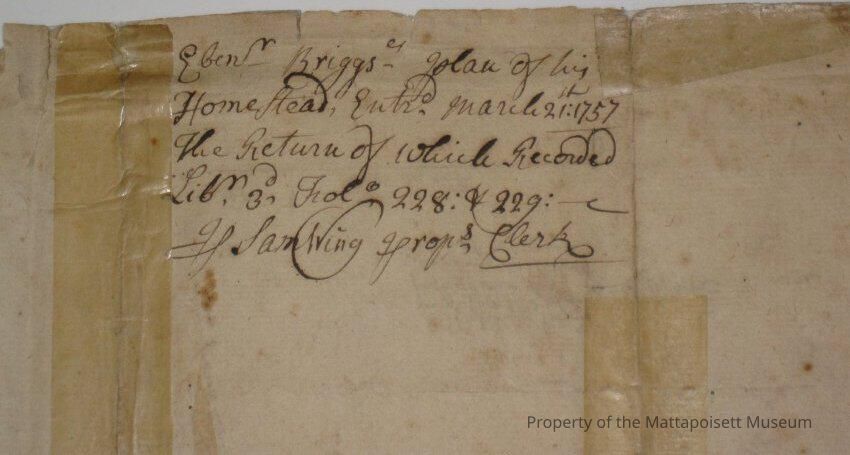 Ebenr Briggs's Plan of his
Homestead, Entrd March 21st: 1757
The Return of which Recorded
Libr 3d Folo 228: & 229:
Pr Sam Wing Proprs Clerk
Property of the Mattapoisett Museum